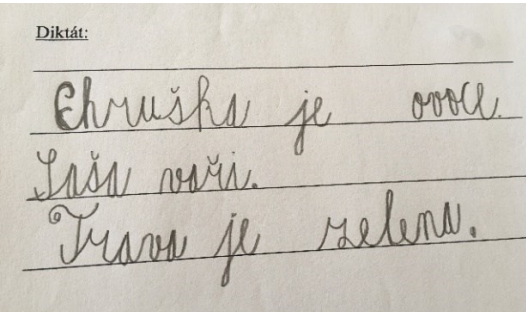 Diktát:
Chruška je ovoce.
Saša vaři.
Trava je zelena.